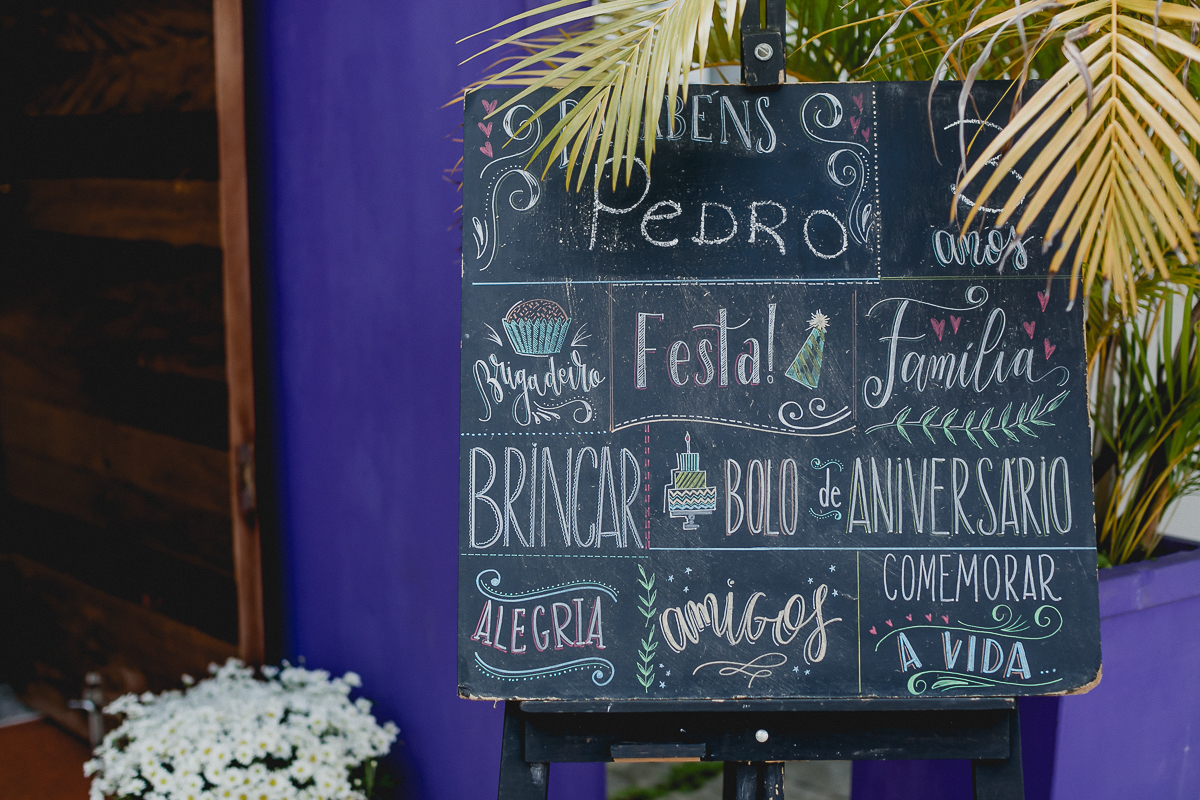 PARABÉNS
PEDRO
anos
Brigadeiro
Festa!
Família
BRINCAR
BOLO de ANIVERSÁRIO
ALEGRIA
amigos
COMEMORAR
A VIDA...